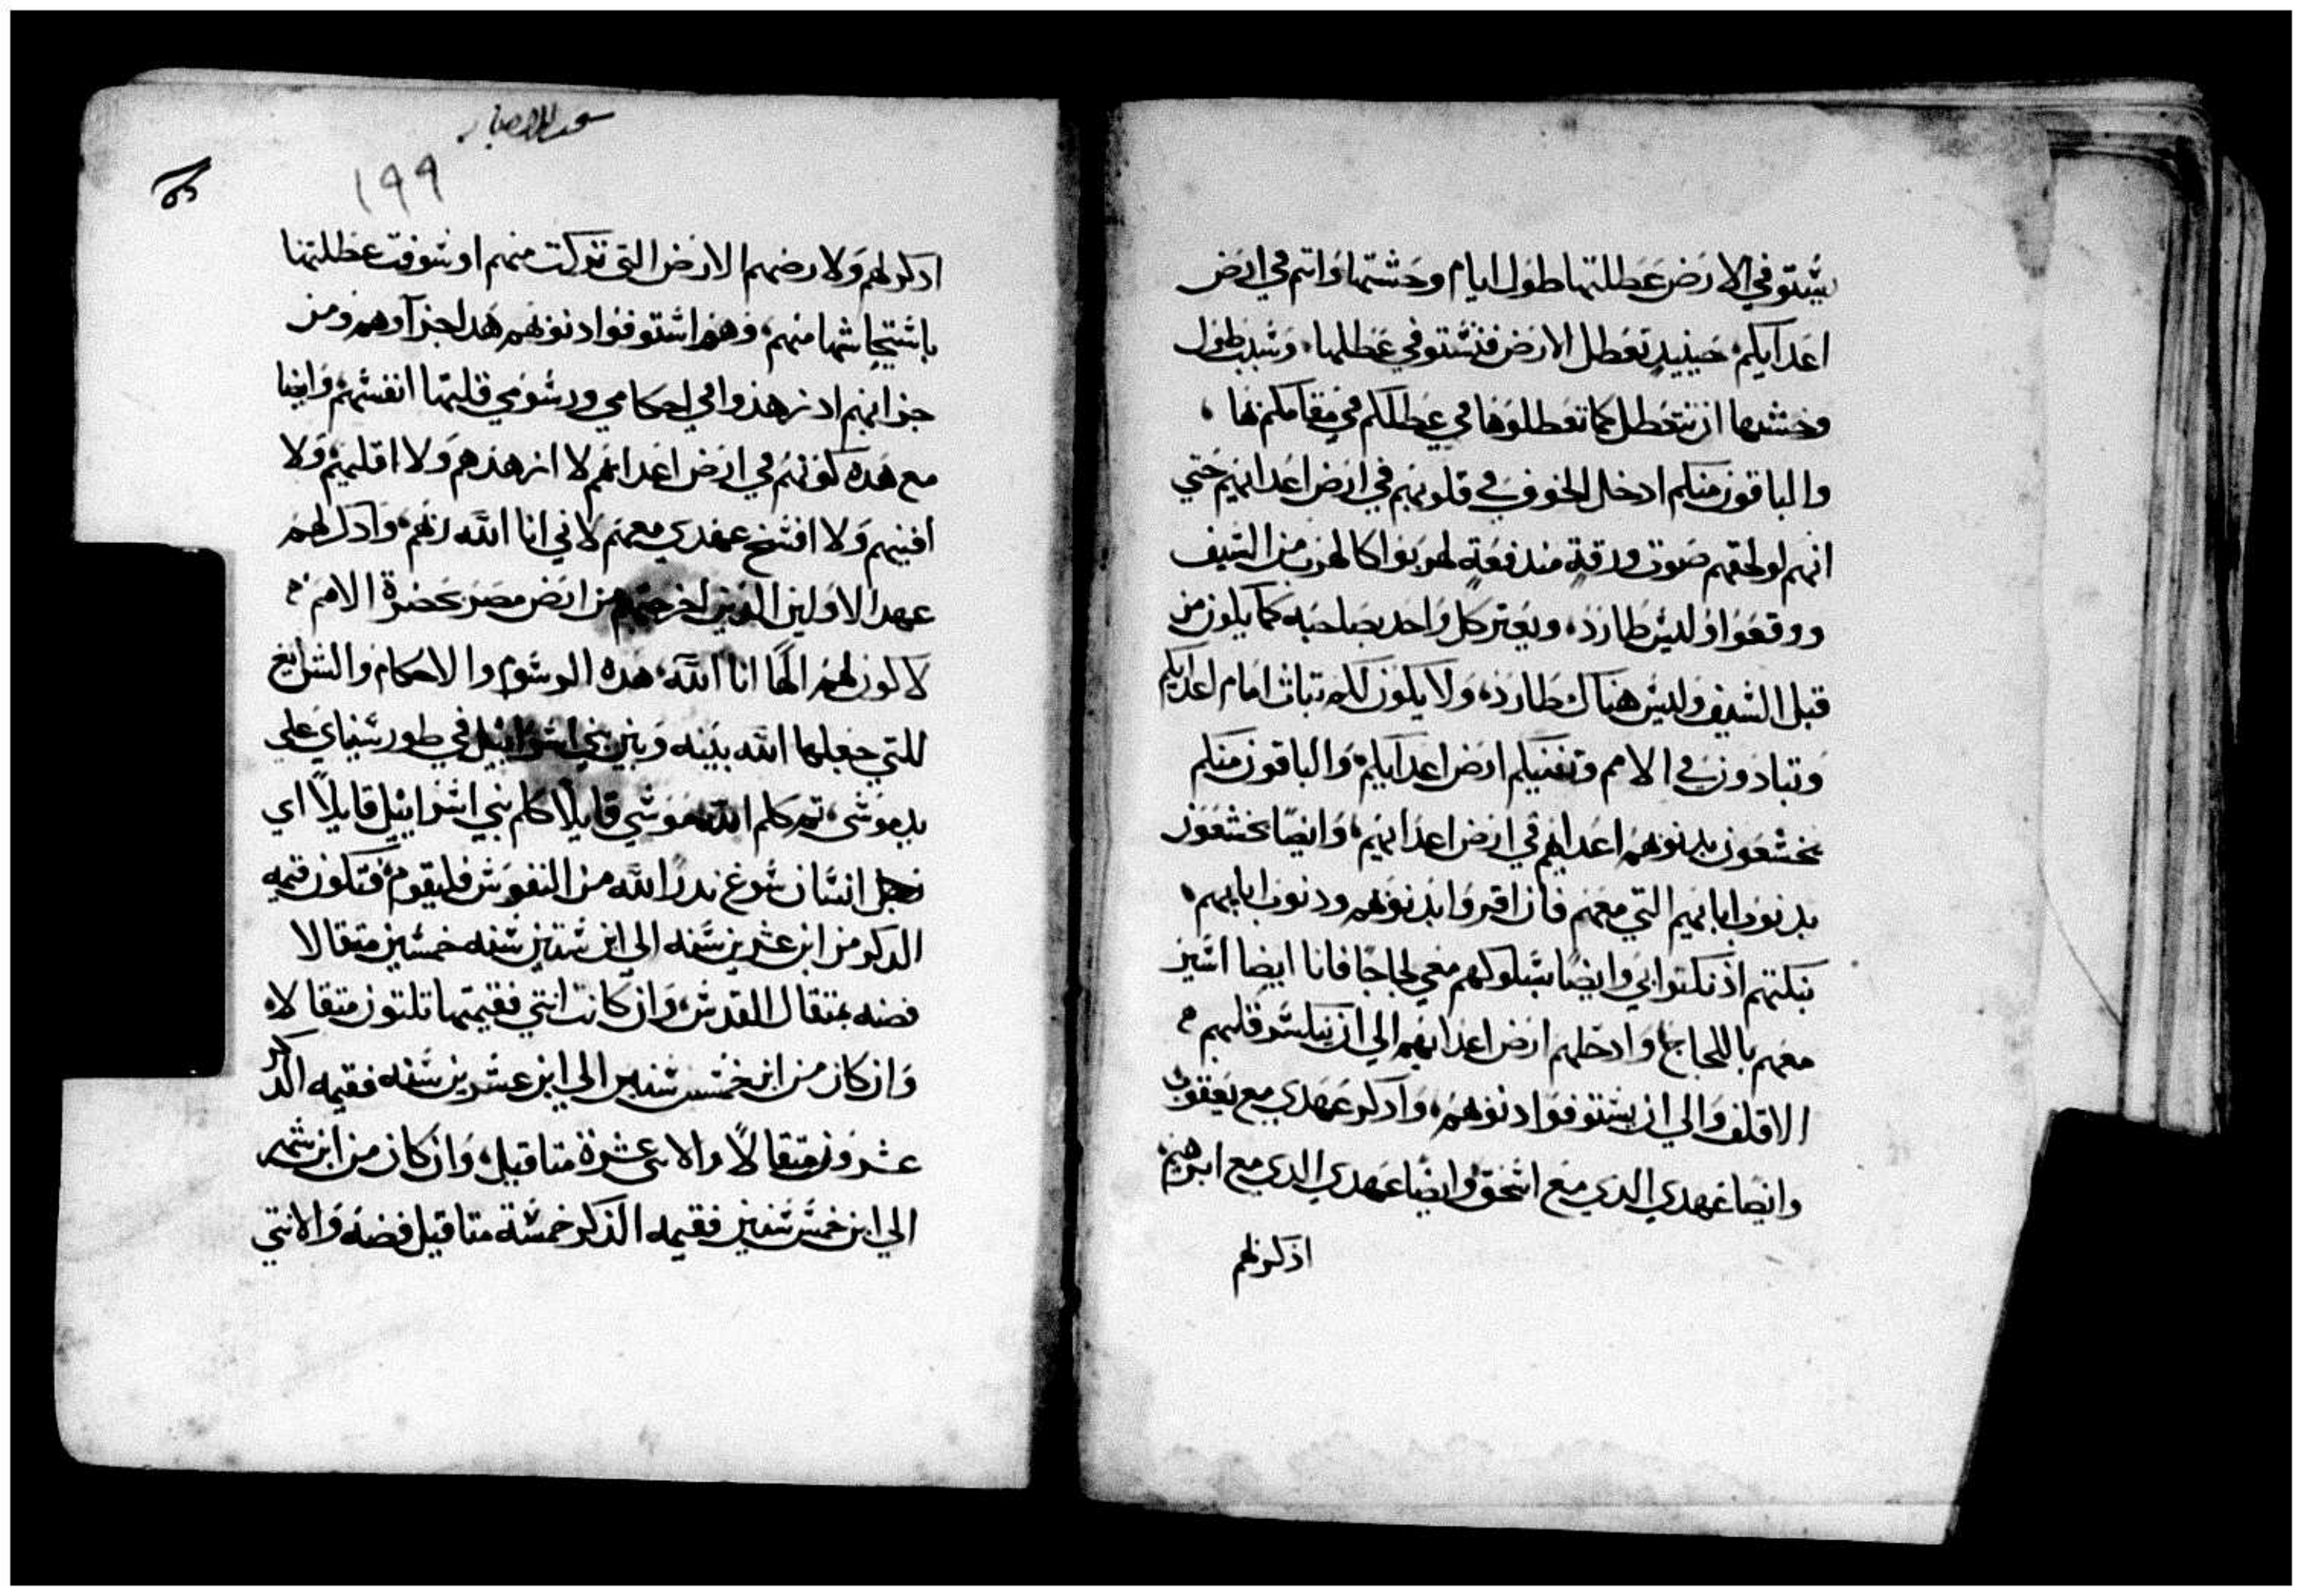 يستوفي الارض عطلتها طول ايام وحشتها وانتم في ارض
اعدايكم، حينيد تعطل الارض فتستوفي عطلها، وسبب طول
وحشدها ان تتعطل كما تعطلوها في عطلكم في مقامكم بها،
والباقون منكم ادخل الخوف في قلوبهم في ارض اعدايهم حتي
انهم لو لحقهم صوت ورقة مندفعة لهربوا كالهرب من السيف
ووقعوا وليس طارد، ويعتر كل واحد بصاحبه كما يكون من
قبل السيف وليس هناك طارد، ولا يكون لكم تبات امام اعدايكم
وتبادون في الامم وتفنيكم ارض اعدايكم، والباقون منكم
يخشعون بدنوبهم اعدايهم في ارض اعدايهم، وايضًا يخشعون
بدنوب ابايهم التي معهم فان اقروا بدنوبهم ودنوب ابايهم،
بنكتهم اذ نكتوا بي وايضًا بسلوكهم معي لجاجًا فانا ايضا اسير
معهم باللجاج، وادخلهم ارض اعدايهم الي ان ينكسر قلبهم
الاقلف والي ان يستوفوا دنوبهم، وادكر عهدي مع يعقوب
وايضا عهدي الدي مع اسحق وايضا عهدي الدي مع ابرهيم
اذكر لهم
199
ادكر لهم ولارضهم الارض التي تركت منهم اوسوفت عطلتها
باستيحاشها منهم، وهم استوفوا دنوبهم هدا جزآوهم ومن
جزايهم اد زهدوا في احكامي ورسومي قلتها انفسهم، وايضا
مع هده كونهم في ارض اعدايهم لا ازهدهم ولا اقليهم ولا
افنيهم ولا افسخ عهدي معهم لاني انا الله ربهم، وادكر لهم
عهد الاولين الدين اخرجتهم من ارض مصر بحضرة الامم
لاكون لهم الهًا انا الله، هده الرسوم والاحكام والشرايع
للتي جعلها الله بينه وبين بني اسراييل في طور سيناي علي
يد موسى، تم كلم الله موسي قايلًا كلم بني اسراييل قايلًا اي
رجل انسان سوغ ندرًا لله من النفوس فليقوم، فتكون قيمه
الدكر من ابن عشرين سنه الي ابن ستين سنه خمسين متقالا
فضه بمتقال القدس، وان كانت انتي فقيمتها تلتون متقالا
وان كان من ابن خمس سنين الي ابن عشرين سنه فقيمه الدكر
عشرون متقالًا والانتي عشرة متاقيل، وان كان من ابن شهر
الي ابن خمس سنين فقيمه الذكر خمسة متاقيل فضه والانتي